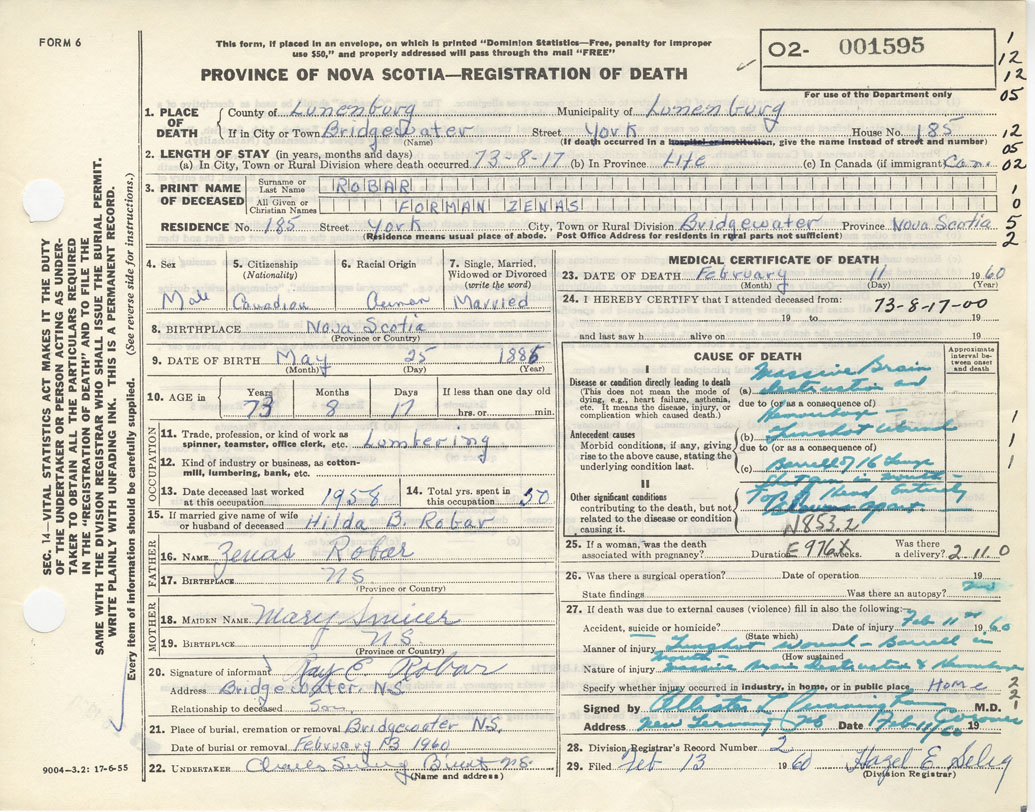 FORM 6
This form, if placed in an envelope, on which is printed "Dominion Statistics—Free, penalty for improper
use $50," and properly addressed will pass through the mail "FREE"
PROVINCE OF NOVA SCOTIA—REGISTRATION OF DEATH
02- 001595
For use of the Department only
1
12
12
05
12
05
02
1
0
5
2
SEC. 14—VITAL STATISTICS ACT MAKES IT THE DUTY
OF THE UNDERTAKER OR PERSON ACTING AS UNDER-
TAKER TO OBTAIN ALL THE PARTICULARS REQUIRED
IN THE "REGISTRATION OF DEATH" AND TO FILE THE
SAME WITH THE DIVISION REGISTRAR WHO SHALL ISSUE THE BURIAL PERMIT.
WRITE PLAINLY WITH UNFADING INK. THIS IS A PERMANENT RECORD.
Every item of information should be carefully supplied. (See reverse side for instructions.)
1. PLACE OF DEATH County of Lunenburg Municipality of Lunenburg
If in City or Town Bridgewater Street York House No. 185
(Name) (If death occurred in a hospital or institution, give the name instead of street and number)
2. LENGTH OF STAY (in years, months and days)
(a) In City, Town or Rural Division where death occurred 73-8-17 (b) In Province Life (c) In Canada (if immigrant) Can.
3. PRINT NAME OF DECEASED Surname or Last Name ROBAR
All Given or Christian Names FORMAN ZENAS
RESIDENCE No. 185 Street York City, Town or Rural Division Bridgewater Province Nova Scotia
(Residence means usual place of abode. Post Office Address for residents in rural parts not sufficient)
4. Sex Male
5. Citizenship (Nationality) Canadian
6. Racial Origin German
7. Single, Married, Widowed or Divorced (write the word) Married
8. BIRTHPLACE Nova Scotia
(Province or Country)
9. DATE OF BIRTH May 25 1886
(Month) (Day) (Year)
10. AGE in Years 73 Months 8 Days 17 If less than one day old hrs. or min.
OCCUPATION
11. Trade, profession, or kind of work as spinner, teamster, office clerk, etc. Lumbering
12. Kind of industry or business, as cotton-mill, lumbering, bank, etc.
13. Date deceased last worked at this occupation 1958 14. Total yrs. spent in this occupation 50
15. If married give name of wife or husband of deceased Hilda B. Robar
FATHER
16. NAME Zenas Robar
17. BIRTHPLACE NS
(Province or Country)
MOTHER
18. MAIDEN NAME Mary
19. BIRTHPLACE N.S.
(Province or Country)
20. Signature of informant Ray E. Robar
Address Bridgewater, N.S.
Relationship to deceased Son
21. Place of burial, cremation or removal Bridgewater N.S.
Date of burial or removal February 13 1960
22. UNDERTAKER Charles
(Name and address)
9004—3.2: 17-6-55
MEDICAL CERTIFICATE OF DEATH
23. DATE OF DEATH February 11 1960
(Month) (Day) (Year)
24. I HEREBY CERTIFY that I attended deceased from: 73-8-17-00
19 to 19
and last saw h alive on 19
CAUSE OF DEATH
Approximate interval between onset and death
I
Disease or condition directly leading to death
(This does not mean the mode of dying, e.g., heart failure, asthenia, etc. It means the disease, injury, or complication which caused death.)
(a) Massive Brain
destruction and
due to (or as a consequence of)
Antecedent causes
Morbid conditions, if any, giving rise to the above cause, stating the underlying condition last.
(b)
due to (or as a consequence of)
(c) Barrel of 16 Gauge
Shotgun in mouth—
II
Other significant conditions contributing to the death, but not related to the disease or condition causing it.
Top of Head Entirely
Blown apart
N853.2
E976X
1
1
1
25. If a woman, was the death associated with pregnancy? Duration weeks. Was there a delivery? 2.11.0
26. Was there a surgical operation? Date of operation 19
State findings Was there an autopsy? no
27. If death was due to external causes (violence) fill in also the following:—
Accident, suicide or homicide? Date of injury Feb 11 1960
(State which)
Manner of injury Wound - Barrel in
(How sustained)
mouth
Nature of injury Massive Brain Destruction &
Specify whether injury occurred in industry, in home, or in public place Home
2
2
1
Signed by L Cunningham M.D.
Coroner
Address Date Feb 11/60 19
28. Division Registrar's Record Number 2
29. Filed Feb 13 1960 Hazel E. Selig
(Division Registrar)